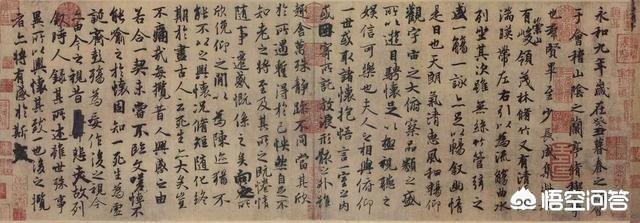 永和九年歲在癸丑暮春之初會
于會稽山陰之蘭亭脩稧事
也羣賢畢至少長咸集此地
有崇山峻領茂林脩竹又有清流激
湍暎帶左右引以為流觴曲水
列坐其次雖無絲竹管弦之
盛一觴一詠亦足以暢敘幽情
是日也天朗氣清惠風和暢仰
觀宇宙之大俯察品類之盛
所以遊目騁懷足以極視聽之
娛信可樂也夫人之相與俯仰
一世或取諸懷抱悟言一室之內
或因寄所託放浪形骸之外雖
趣舍萬殊靜躁不同當其欣
於所遇蹔得於己怏然自足不
知老之將至及其所之既惓情
隨事遷感慨係之矣向之所
欣俛仰之閒以為陳迹猶不
能不以之興懷況脩短隨化終
期於盡古人云死生亦大矣豈
不痛哉每攬昔人興感之由
若合一契未嘗不臨文嗟悼不
能喻之於懷固知一死生為虛
誕齊彭殤為妄作後之視今
亦由今之視昔悲夫故列
敘時人錄其所述雖世殊事
異所以興懷其致一也後之攬
者亦將有感於斯
悟空问答